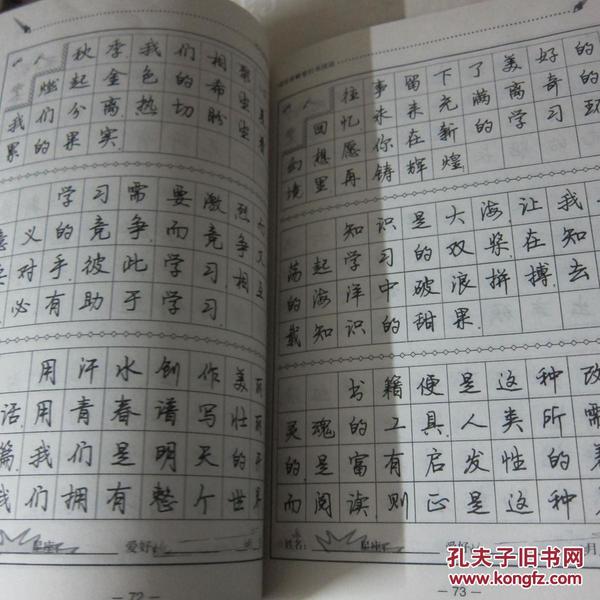 秋季,我们相聚
燃起金色的希
我们分离,热切盼
累的果实.
学习需要激烈
意义的竞争,而竞争又
要对手,彼此学习相互
必有助于学习.
用汗水创作美丽
话,用青春谱写壮丽
篇,我们是明天的
我们拥有整个世界
爱好:
— 72 —
往事留下了美好的
回忆,未来充满离奇的
幻想,愿你在新的学习环
境里再铸辉煌.
知识是大海,让我
荡起学习的双桨,在知
的海洋中破浪拼搏,去
载知识的甜果.
书籍便是这种改
灵魂的工具.人类所需
的,是富有启发性的养
而阅读,则正是这种
姓名:
爱好:
月
— 73 —
孔夫子旧书网
www.kongfz.com